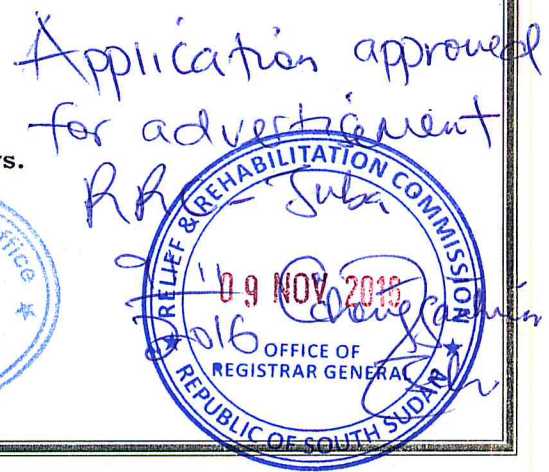 Application approved
for advertisement
rs.
RRC - Juba
ffice
RELIEF & REHABILITATION COMMISSION
09 NOV 2016
2016
OFFICE OF
REGISTRAR GENERAL
REPUBLIC OF SOUTH SUDAN